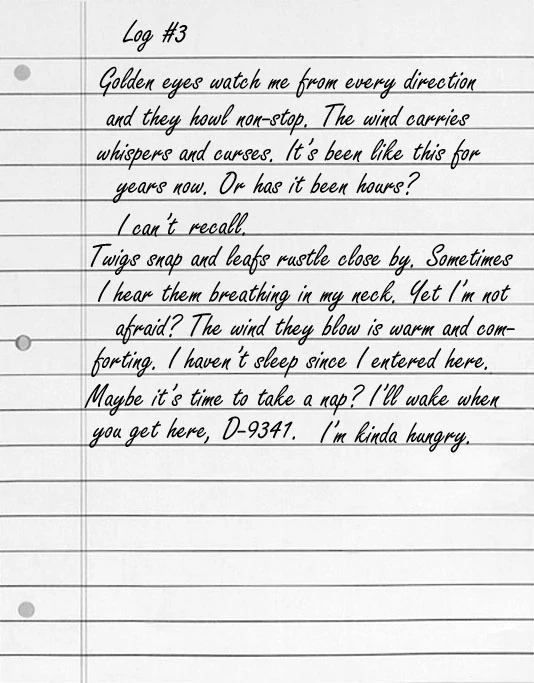 Log #3
Golden eyes watch me from every direction
and they howl non-stop. The wind carries
whispers and curses. It's been like this for
years now. Or has it been hours?
I can't recall.
Twigs snap and leafs rustle close by. Sometimes
I hear them breathing in my neck. Yet I'm not
afraid? The wind they blow is warm and com-
forting. I haven't sleep since I entered here.
Maybe it's time to take a nap? I'll wake when
you get here, D-9341. I'm kinda hungry.